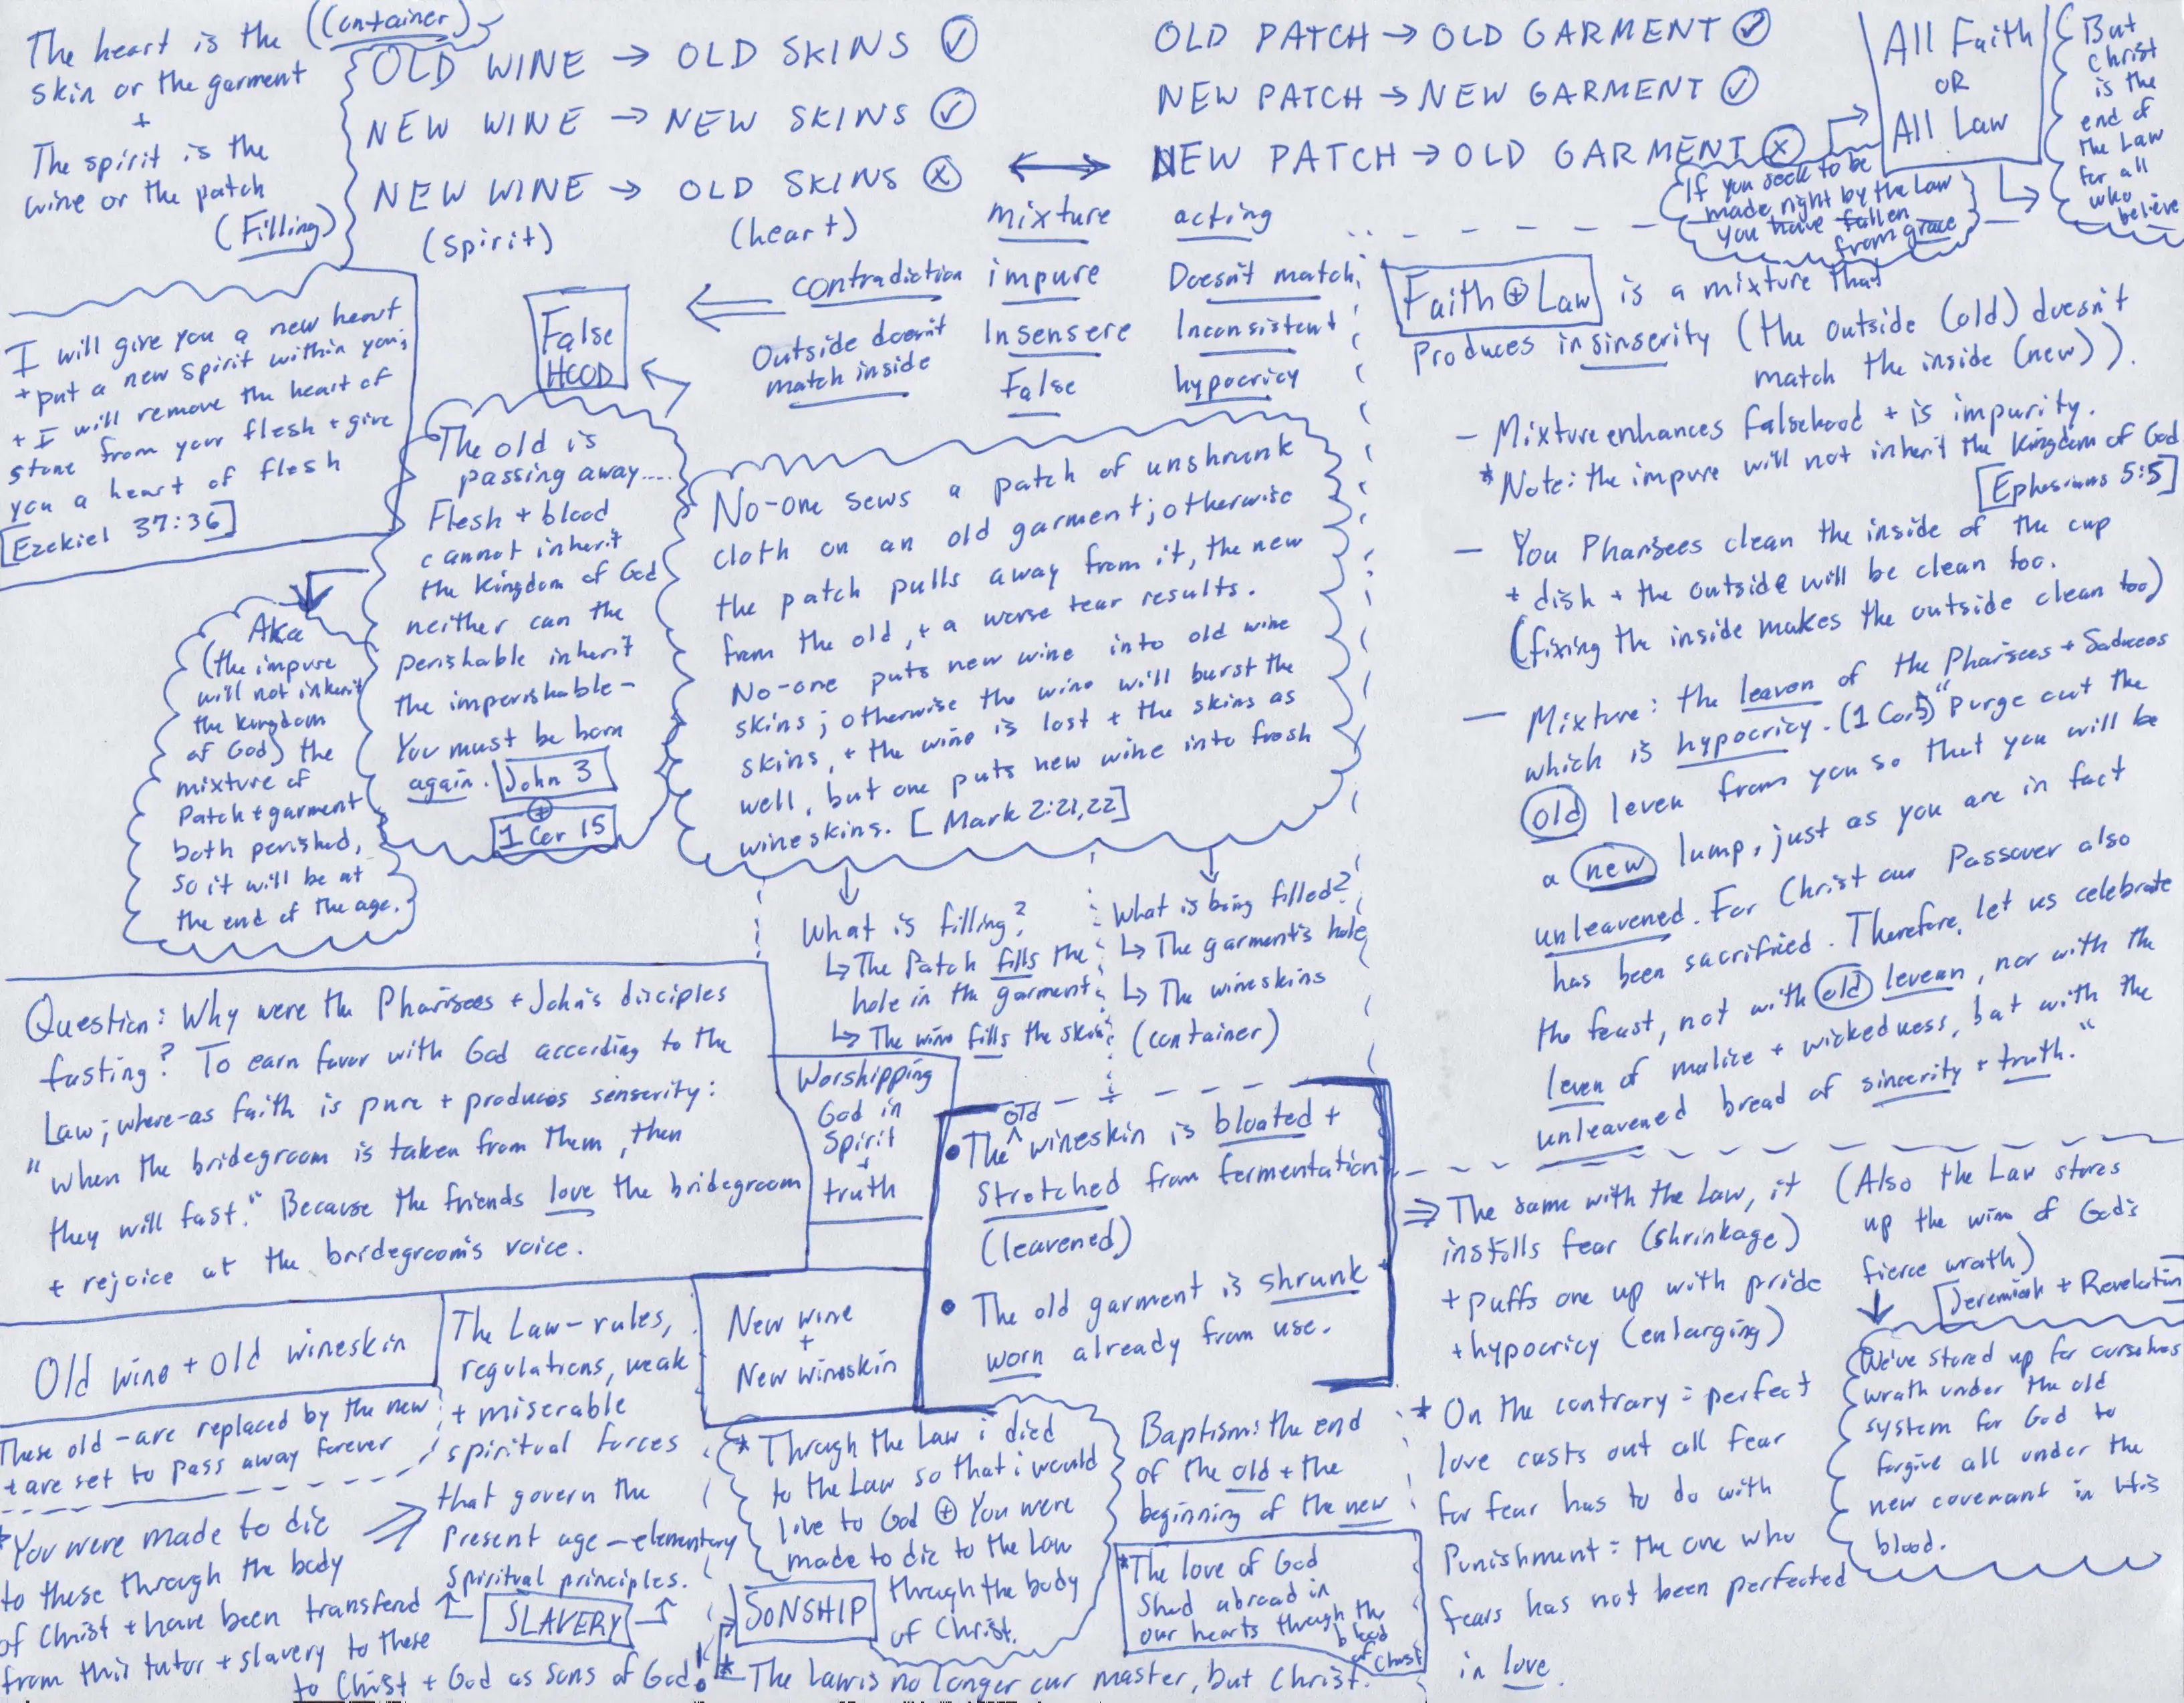 The heart is the (Container)
skin or the garment
+
The spirit is the
wine or the patch
(Filling)
OLD WINE → OLD SKINS ✓
NEW WINE → NEW SKINS ✓
NEW WINE → OLD SKINS ⓧ
(spirit) (heart)
OLD PATCH → OLD GARMENT ✓
NEW PATCH → NEW GARMENT ✓
NEW PATCH → OLD GARMENT ⓧ
All Faith
OR
All Law
But
Christ
is the
end of
the Law
for all
who
believe
If you seek to be
made right by the Law
you have fallen
from grace
mixture acting
contradiction impure Doesn't match
Outside doesn't Insensere Inconsistent
match inside False hypocricy
False
HOOD
I will give you a new heart
+ put a new spirit within you;
+ I will remove the heart of
stone from your flesh + give
you a heart of flesh
[Ezekiel 37:36]
The old is
passing away....
Flesh + blood
cannot inherit
the Kingdom of God
neither can the
perishable inherit
the imperishable -
You must be born
again. John 3
⊕
1 Cor 15
Aka
(the impure
will not inherit
the kingdom
of God) the
mixture of
Patch + garment
both perished,
so it will be at
the end of the age.
No-one sews a patch of unshrunk
cloth on an old garment; otherwise
the patch pulls away from it, the new
from the old, + a worse tear results.
No-one puts new wine into old wine
skins; otherwise the wine will burst the
skins, + the wine is lost + the skins as
well, but one puts new wine into fresh
wineskins. [Mark 2:21,22]
What is filling?
↳ The Patch fills the
hole in the garment
↳ The wine fills the skin
What is being filled?
↳ The garment's hole
↳ The wineskins
(container)
Faith ⊕ Law is a mixture that
Produces insinserity (the outside (old) doesn't
match the inside (new)).
- Mixture enhances falsehood + is impurity.
* Note: the impure will not inherit the Kingdom of God
[Ephesians 5:5]
- You Pharisees clean the inside of the cup
+ dish + the outside will be clean too.
(fixing the inside makes the outside clean too)
- Mixture: the leaven of the Pharisees + Saducees
which is hypocricy. (1 Cor 5) "Purge out the
old leven from you so that you will be
a new lump, just as you are in fact
unleavened. For Christ our Passover also
has been sacrificed. Therefore, let us celebrate
the feast, not with old levean, nor with the
leven of malice + wickedness, but with the
unleavened bread of sincerity + truth."
Question: Why were the Pharisees + John's disciples
fasting? To earn favor with God according to the
Law; where-as faith is pure + produces senserity:
"when the bridegroom is taken from them, then
they will fast." Because the friends love the bridegroom
+ rejoice at the bridegroom's voice.
Worshipping
God in
Spirit
+
truth
• The old wineskin is bloated +
stretched from fermentation
(leavened)
• The old garment is shrunk +
worn already from use.
⇒ The same with the Law, it
instills fear (shrinkage)
+ puffs one up with pride
+ hypocricy (enlarging)
(Also the Law stores
up the wine of God's
fierce wrath)
[Jeremiah + Revelation
We've stored up for ourselves
wrath under the old
system for God to
forgive all under the
new covenant in His
blood.
* On the contrary = perfect
love casts out all fear
for fear has to do with
Punishment = the one who
fears has not been perfected
in love.
Old wine + old wineskin
These old - are replaced by the new
+ are set to pass away forever
* You were made to die
to these through the body
of Christ + have been transferd
from this tutor + slavery to these
to Christ + God as sons of God!
The Law - rules,
regulations, weak
+ miserable
spiritual forces
that govern the
present age - elementary
spiritual principles.
SLAVERY
New wine
+
New wineskin
* Through the Law i died
to the Law so that i would
live to God ⊕ You were
made to die to the Law
through the body
of Christ.
SONSHIP
* The Law is no longer our master, but Christ.
Baptism: the end
of the old + the
beginning of the new
* The love of God
shed abroad in
our hearts through the
blood
of Christ